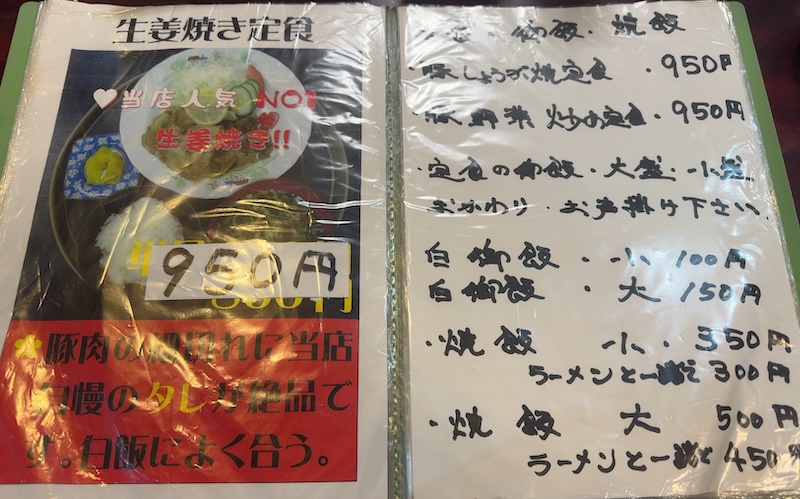 生姜焼き定食
♥当店人気 NO1
生姜焼き!!
950円
豚肉の細切れに当店
自慢のタレが絶品で
す。白飯によく合う。
定食・御飯・焼飯
・豚しょうが焼定食・950円
・豚野菜炒め定食・950円
・定食の御飯・大盛・小盛
おかわり・お声掛け下さい
白御飯・小 100円
白御飯・大 150円
・焼飯 小・350円
ラーメンと一緒で300円
・焼飯 大 500円
ラーメンと一緒で450円